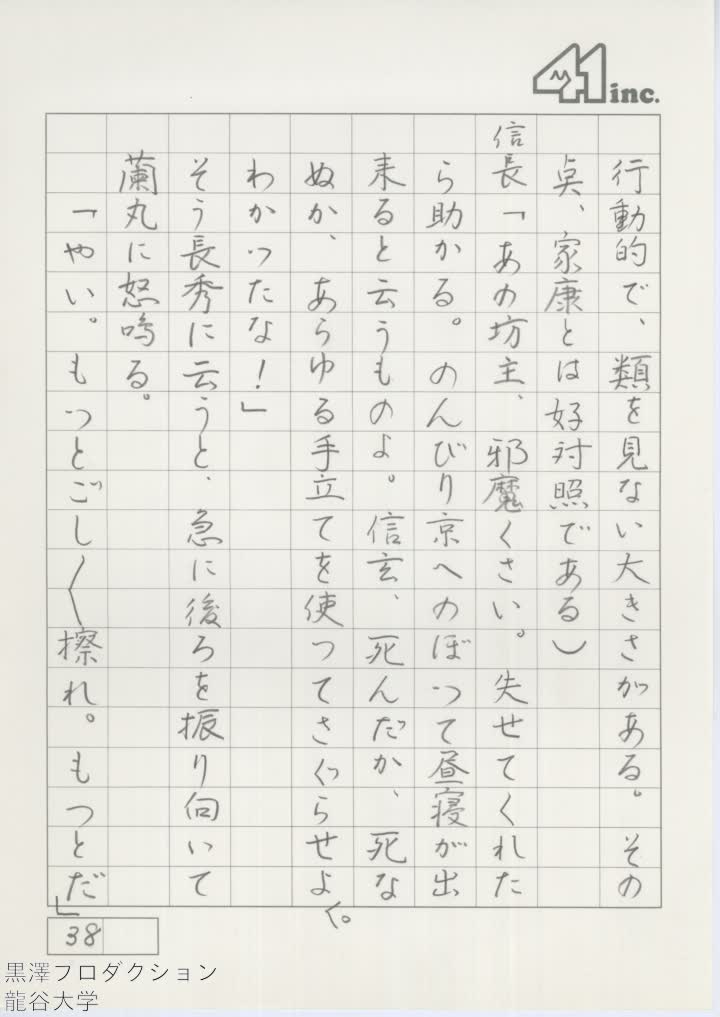 41 inc.
行動的で、類を見ない大きさがある。その
点、家康とは好対照である)
信長「あの坊主、邪魔くさい。失せてくれた
ら助かる。のんびり京へのぼって昼寝が出
来ると云うものよ。信玄、死んだか、死な
ぬか、あらゆる手立てを使ってさぐらせよ。
わかったな!」
そう長秀に云うと、急に後ろを振り向いて
蘭丸に怒鳴る。
「やい。もっとごし〱擦れ。もっとだ」
38
黒澤プロダクション
龍谷大学